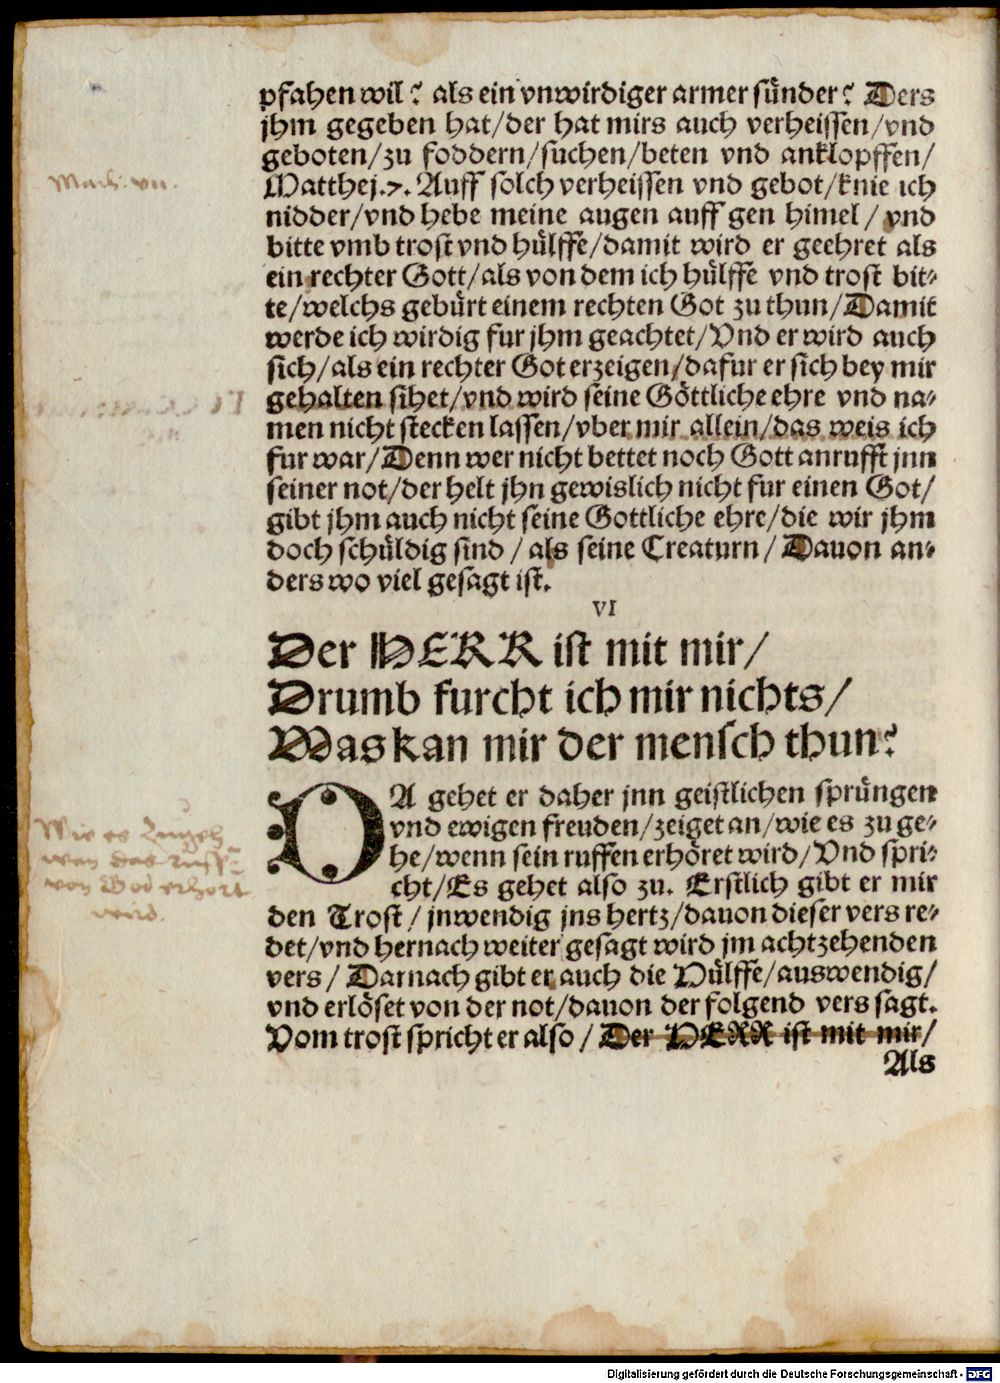 pfahen wil? als ein vnwirdiger armer sünder? Ders
jhm gegeben hat/der hat mirs auch verheissen/vnd
geboten/zu foddern/suchen/beten vnd anklopffen/
Matthej.7. Auff solch verheissen vnd gebot/knie ich
nidder/vnd hebe meine augen auff gen himel/vnd
bitte vmb trost vnd hülffe/damit wird er geehret als
ein rechter Gott/als von dem ich hülffe vnd trost bit-
te/welchs gebürt einem rechten Got zu thun/Damit
werde ich wirdig fur jhm geachtet/Vnd er wird auch
sich/als ein rechter Got erzeigen/dafur er sich bey mir
gehalten sihet/vnd wird seine Göttliche ehre vnd na-
men nicht stecken lassen/vber mir allein/das weis ich
fur war/Denn wer nicht bettet noch Gott anrufft jnn
seiner not/der helt jhn gewislich nicht fur einen Got/
gibt jhm auch nicht seine Gottliche ehre/die wir jhm
doch schüldig sind/als seine Creaturn/Dauon an-
ders wo viel gesagt ist.
VI
Der HERR ist mit mir/
Drumb furcht ich mir nichts/
Was kan mir der mensch thun?
DA gehet er daher jnn geistlichen sprüngen
vnd ewigen freuden/zeiget an/wie es zu ge-
he/wenn sein ruffen erhöret wird/Vnd spri-
cht/Es gehet also zu. Erstlich gibt er mir
den Trost/jnwendig jns hertz/dauon dieser vers re-
det/vnd hernach weiter gesagt wird jm achtzehenden
vers/Darnach gibt er auch die Hülffe/auswendig/
vnd erlöset von der not/dauon der folgend vers sagt.
Vom trost spricht er also/Der HERR ist mit mir/
Als
Math. vii.
Wie es Zugeh
wen das ruff-
von God erhort
wird.
Digitalisierung gefördert durch die Deutsche Forschungsgemeinschaft - DFG